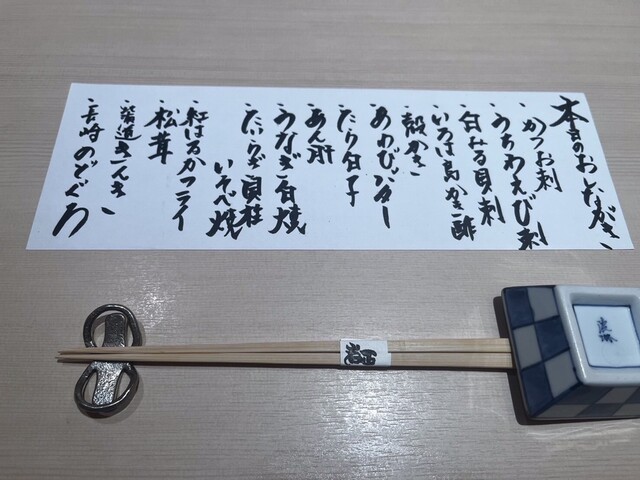 本日のおしながき
・かつお刺
・うちわえび刺
・白みる貝刺
・いろは島かき酢
・殻かき
・あわびバター
・たら白子
・あん肝
・うなぎ白焼
・たいらぎ貝柱
いそべ焼
・紅はるかフライ
・松茸
・長崎のどぐろ